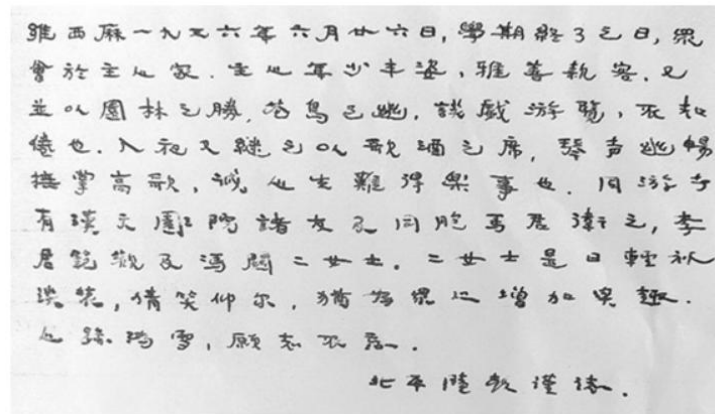 維西麻一九五六年六月廿六日,學期終了之日,眾
會於主人家.主人年少丰姿,雅善款客.又
並以園林之勝,花鳥之幽,談戲游覽,不知
倦也.入夜又繼之以歌酒之席,琴声幽暢
擊掌高歌,誠人生難得樂事也.同游者
有漢文園院諸友及同胞馬君衛之,李
君範歡及馮關二女士.二女士是日輕紗
淡裝,倩笑仰尔,猶為眾人增加樂趣.
人跡鴻雪,願志不忘.
北平陸 謹誌.